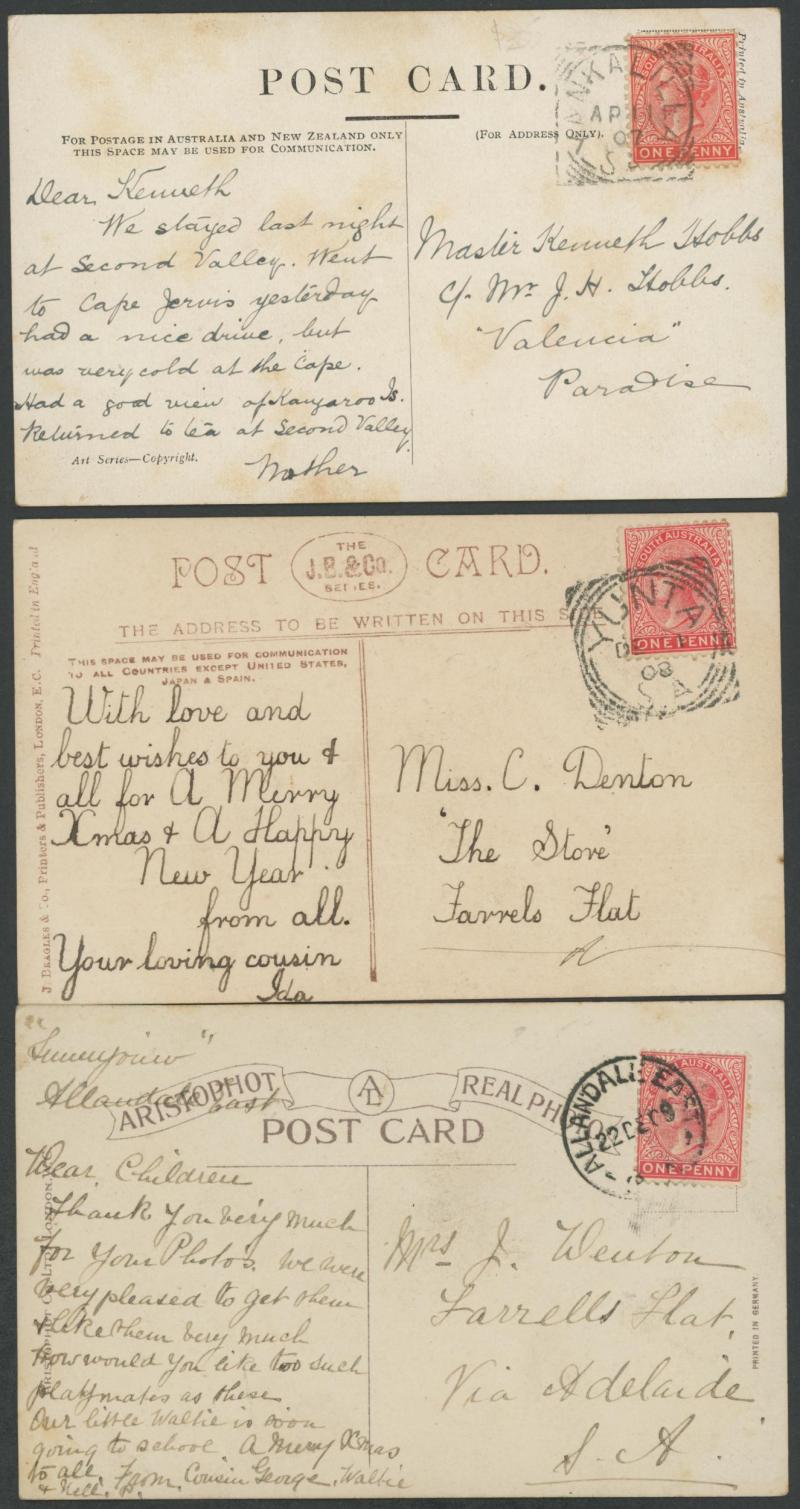 POST CARD.
FOR POSTAGE IN AUSTRALIA AND NEW ZEALAND ONLY
THIS SPACE MAY BE USED FOR COMMUNICATION.
(FOR ADDRESS ONLY).
Printed in Australia
SOUTH AUSTRALIA
ONE PENNY
YANKALILLA
AP 1
07
S.A
Dear Kenneth
We stayed last night
at Second Valley. Went
to Cape Jervis yesterday
had a nice drive, but
was very cold at the Cape.
Had a good view of Kangaroo Is.
Returned to tea at Second Valley.
Mother
Art Series—Copyright.
Master Kenneth Hobbs
c/- Mr J. H. Hobbs.
"Valencia"
Paradise
POST CARD.
THE
J.B. & Co.
SERIES.
THE ADDRESS TO BE WRITTEN ON THIS SIDE
THIS SPACE MAY BE USED FOR COMMUNICATION
TO ALL COUNTRIES EXCEPT UNITED STATES,
JAPAN & SPAIN.
J. BEAGLES & Co., Printers & Publishers, LONDON, E.C. Printed in England
SOUTH AUSTRALIA
ONE PENNY
YUNTA
08
S.A
With love and
best wishes to you &
all for A Merry
Xmas & A Happy
New Year
from all.
Your loving cousin
Ida
Miss. C. Denton
'The Store'
Farrels Flat
"
Allandale East
ARISTOPHOT
AL
REAL PHOTO
POST CARD
ALLANDALE EAST
22 DE 09
ONE PENNY
Dear Children
Thank you very much
for your Photos. we were
very pleased to get them
& like them very much
How would you like too such
playmates as these
Our little Waltie is soon
going to school. A Merry Xmas
to all. From Cousin George, Waltie
& Nell.
Mrs J. Denton
Farrells Flat,
Via Adelaide
S. A.
PRINTED IN GERMANY.